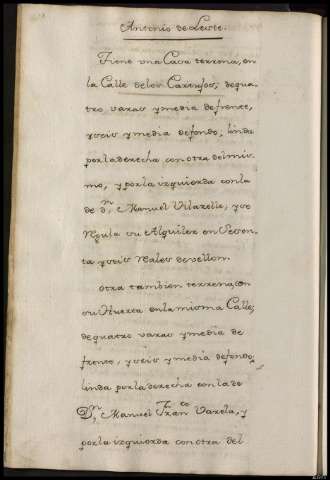 Antonio de Leste.
Tiene una Casa terrena, en
la Calle de los Cartujos, de qua-
tro varas y media de frente,
y seis y media de fondo, linda
por la derecha, con otra del mis-
mo, y por la izquierda con la
de Dn. Manuel Vilarelle, y se
Regula su Alquiler en Sesen-
ta y seis Reales de vellon.
Otra tambien terrena, con
su Huerta en la misma Calle,
de quatro varas y media de
frente, y seis y media de fondo,
linda por la derecha con la de
Dn. Manuel Franco Varela, y
por la izquierda con otra del